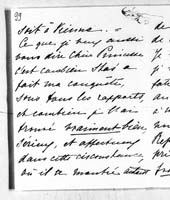 99
soit à Vienne. —
Ce que je veux aussi
vous dire Chère Princesse
c'est combien Stas a
fait ma conquête,
sous tous les rapports,
et combien je l'ai
trouvé vraiment bien,
sérieux, et affectueux
dans cette circonstance,
où il se montre autant